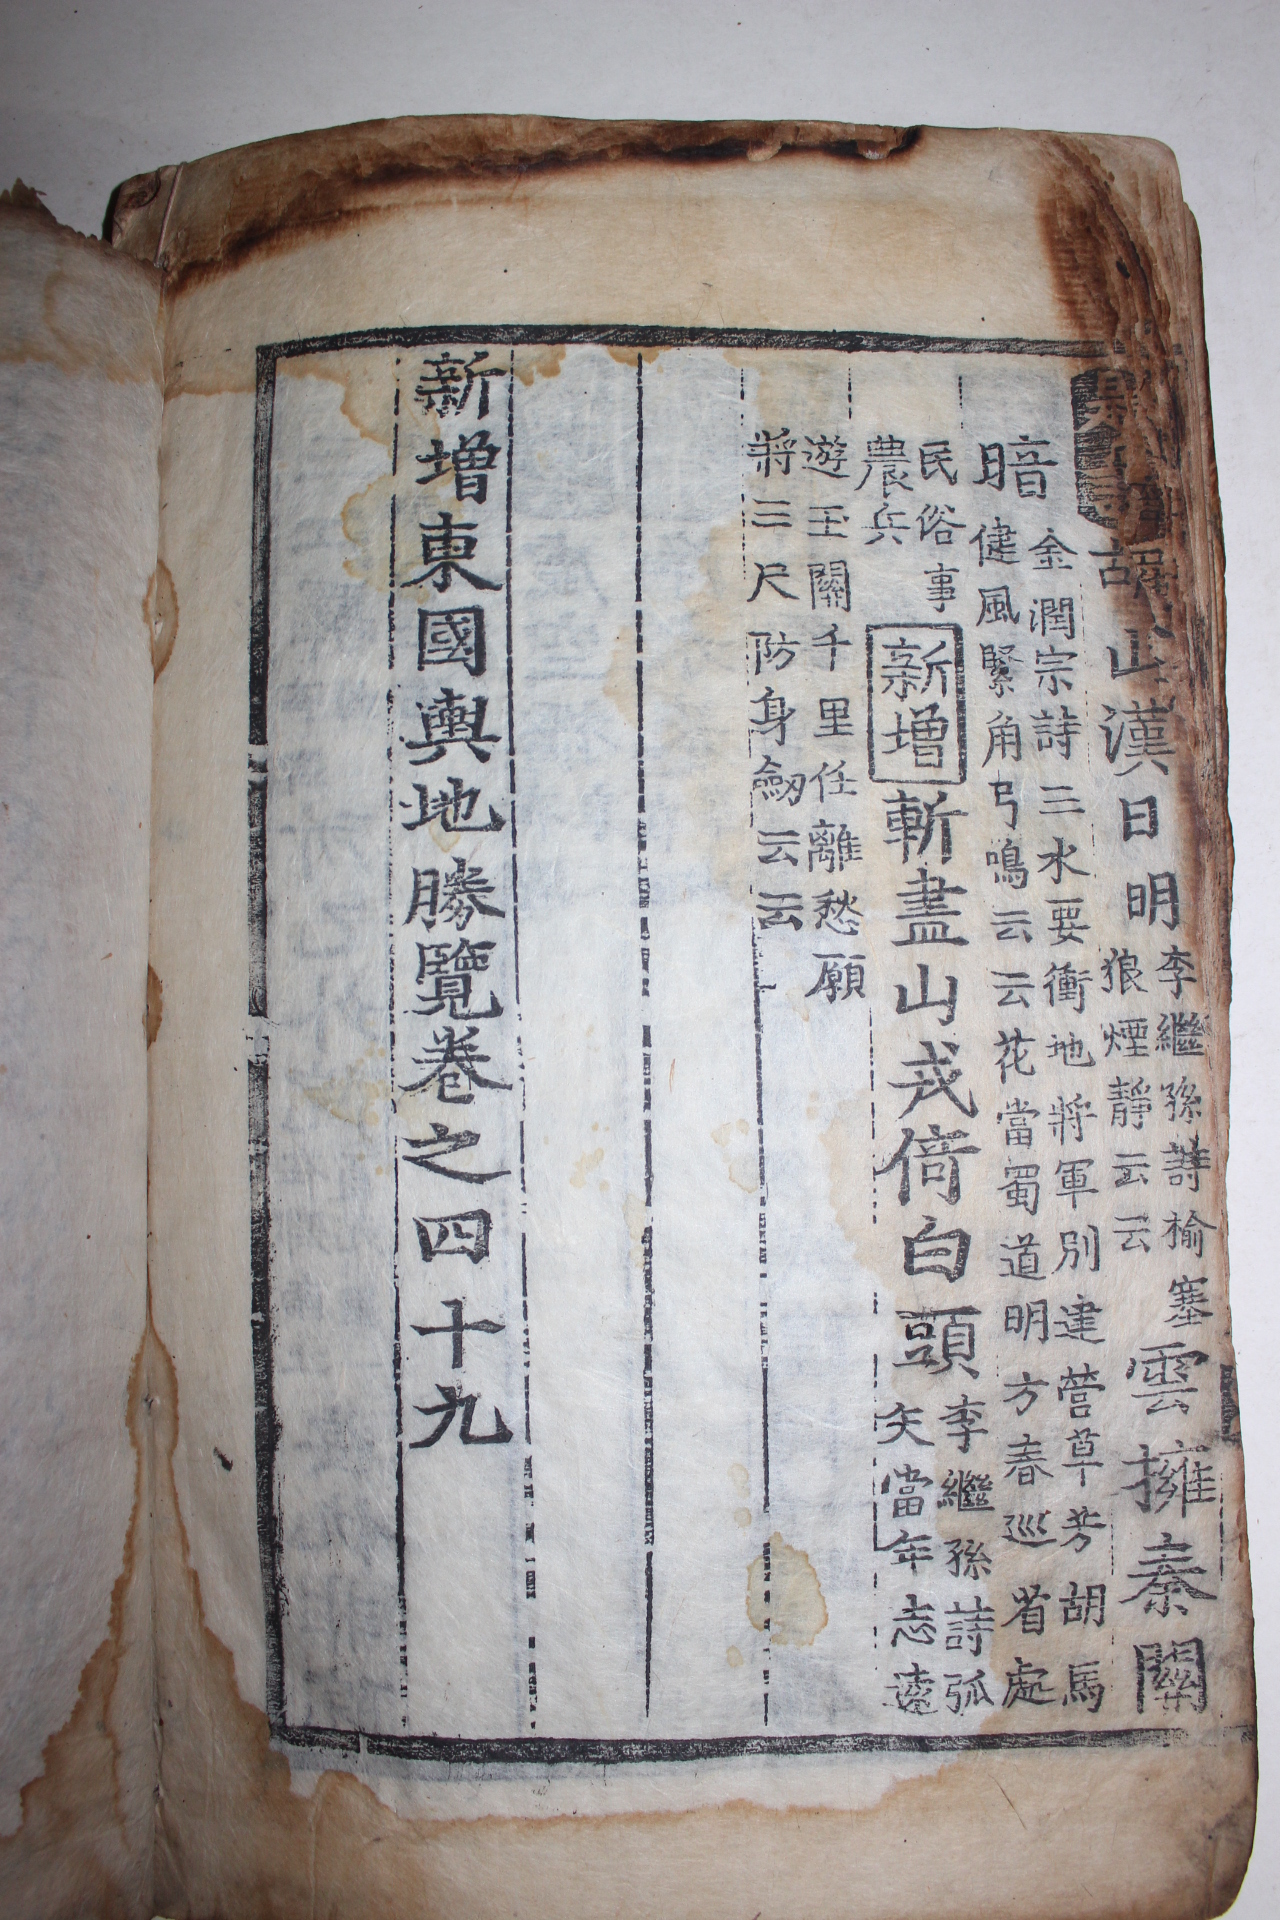 胡山漢日明
李繼孫詩楡塞
狼煙靜云云
雲擁秦關
暗
金潤宗詩三水要衝地將軍別建營草芳胡馬
健風緊角弓鳴云云花當蜀道明方春巡省處
民俗事
農兵
新增
斬盡山戎倚白頭
李繼孫詩弧
矢當年志遠
遊玉關千里任離愁願
將三尺防身劒云云
新增東國輿地勝覽卷之四十九